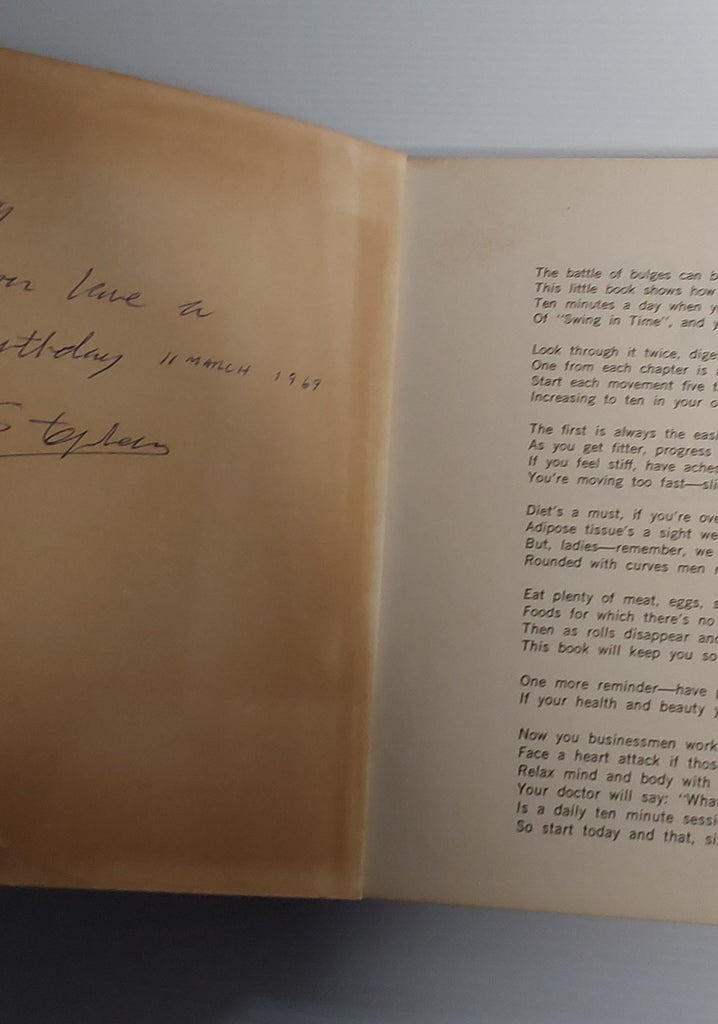 have a
11 MARCH 1969
Stephen
The battle of bulges can b
This little book shows how
Ten minutes a day when y
Of "Swing in Time", and y
Look through it twice, dige
One from each chapter is a
Start each movement five t
Increasing to ten in your o
The first is always the easi
As you get fitter, progress
If you feel stiff, have aches
You're moving too fast—sli
Diet's a must, if you're ove
Adipose tissue's a sight we
But, ladies—remember, we
Rounded with curves men
Eat plenty of meat, eggs, s
Foods for which there's no
Then as rolls disappear and
This book will keep you so
One more reminder—have
If your health and beauty y
Now you businessmen work
Face a heart attack if thos
Relax mind and body with
Your doctor will say: "Wha
Is a daily ten minute sessi
So start today and that, si